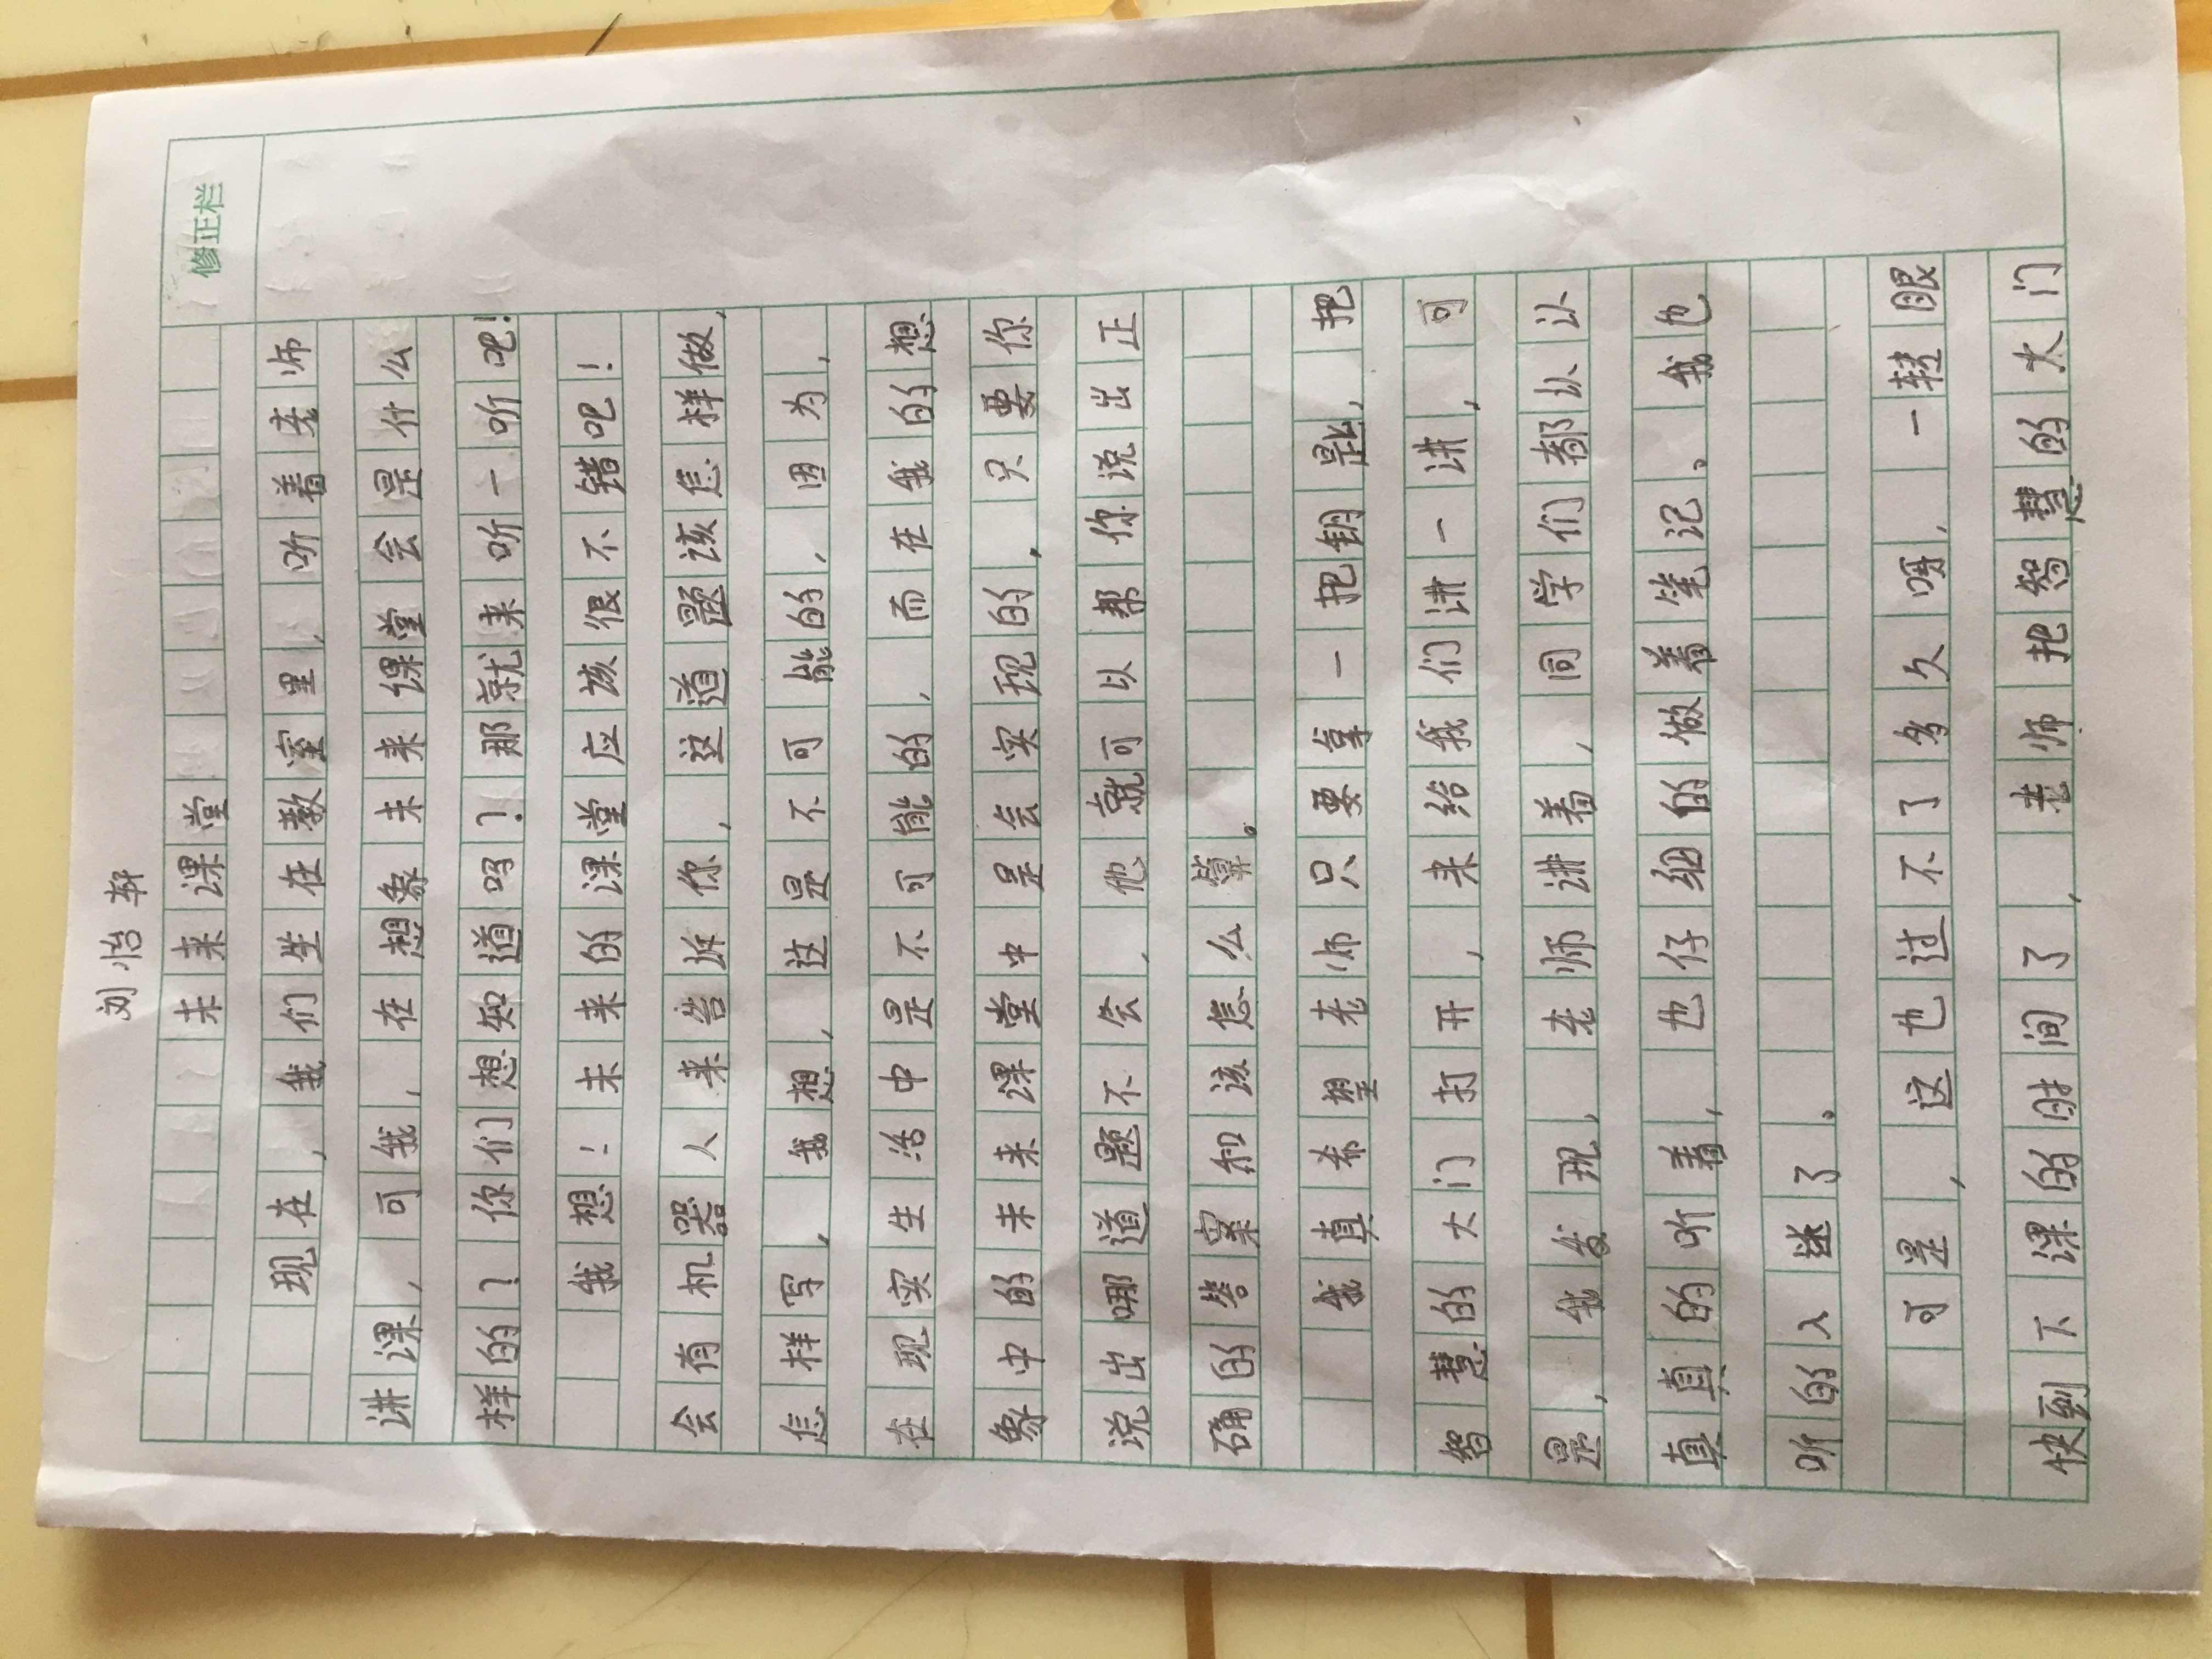 刘怡轩
未来课堂
修正栏
现在，我们坐在教室里，听着老师
讲课，可我，在想象未来课堂会是什么
样的？你们想知道吗？那就来听一听吧！
我想！未来的课堂应该很不错吧！
会有机器人来告诉你，这道题该怎样做，
怎样写，我想，这是不可能的，因为，
在现实生活中是不可能的，而在我的想
象中的未来课堂中是会实现的，只要你
说出哪道题不会，他就可以帮你说出正
确的答案和该怎么算。
我真希望老师只要拿一把钥匙，把
智慧的大门打开，来给我们讲一讲，可
是，我发现，老师讲着，同学们都认认
真真的听着，也仔细的做着笔记。我也
听的入迷了。
可是，这也过不了多久呀，一转眼
快到下课的时间了，老师把智慧的大门